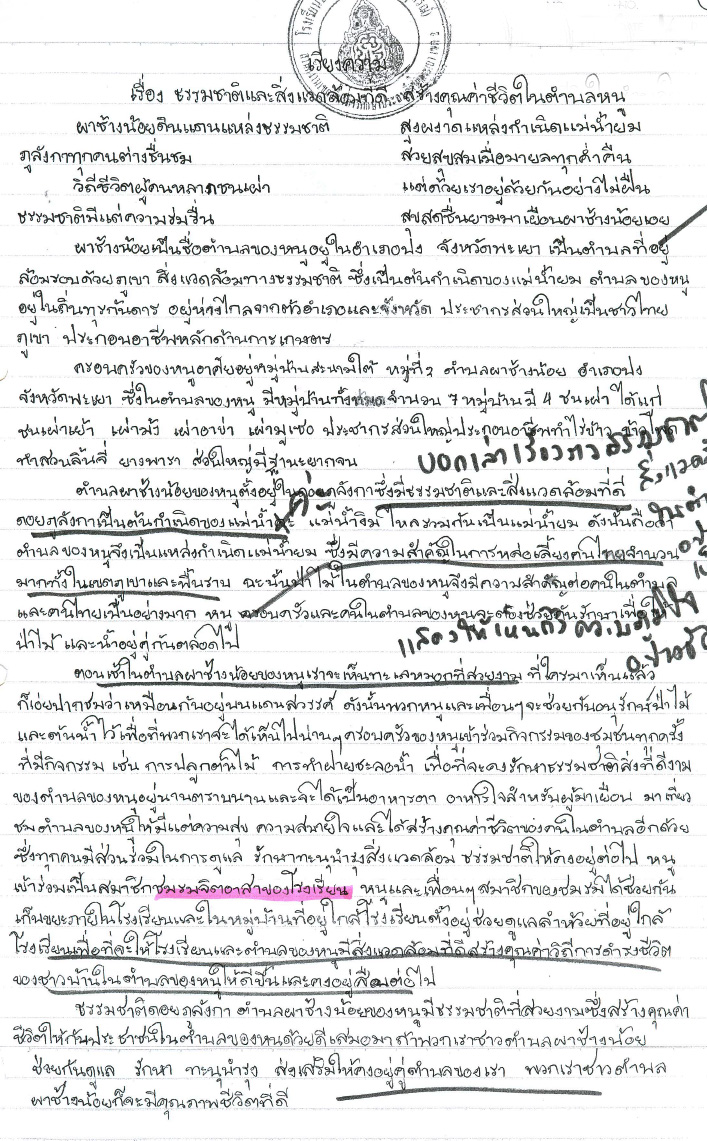 เรียงความ
เรื่อง ธรรมชาติและสิ่งแวดล้อมที่ดี สร้างคุณค่าชีวิตในตำบลหนู
ผาช้างน้อยดินแดนแหล่งธรรมชาติ สูงผงาดแหล่งกำเนิดแม่น้ำยม
ภูลังกาทุกคนต่างชื่นชม สวยสุขสมเมื่อมายลทุกค่ำคืน
วิถีชีวิตผู้คนหลากชนเผ่า แต่ด้วยเราอยู่ด้วยกันอย่างไม่ฝืน
ธรรมชาติมีแต่ความร่มรื่น สุขสดชื่นยามมาเยือนผาช้างน้อยเอย
ผาช้างน้อยเป็นชื่อตำบลของหนูอยู่ในอำเภอปง จังหวัดพะเยา เป็นตำบลที่อยู่
ล้อมรอบด้วยภูเขา สิ่งแวดล้อมทางธรรมชาติ ซึ่งเป็นต้นกำเนิดของแม่น้ำยม ตำบลของหนู
อยู่ในถิ่นทุรกันดาร อยู่ห่างไกลจากตัวอำเภอและจังหวัด ประชากรส่วนใหญ่เป็นชาวไทย
ภูเขา ประกอบอาชีพหลักด้านการเกษตร
ครอบครัวของหนูอาศัยอยู่หมู่บ้านสะนามใต้ หมู่ที่ 2 ตำบลผาช้างน้อย อำเภอปง
จังหวัดพะเยา ซึ่งในตำบลของหนู มีหมู่บ้านทั้งหมดจำนวน 7 หมู่บ้านมี 4 ชนเผ่า ได้แก่
ชนเผ่าเย้า เผ่าม้ง เผ่าอาข่า เผ่ามูเซอ ประชากรส่วนใหญ่ประกอบอาชีพทำไร่ข้าว ข้าวโพด
ทำสวนลิ้นจี่ ยางพารา ส่วนใหญ่มีฐานะยากจน
บอกเล่าเรื่องราวธรรมชาติ
สิ่งแวดล้อม
ตำบลผาช้างน้อยของหนูตั้งอยู่ในดอยภูลังกาซึ่งมีธรรมชาติและสิ่งแวดล้อมที่ดี
ดอยภูลังกาเป็นต้นกำเนิดของแม่น้ำ แม่น้ำงิม ไหลรวมกันเป็นแม่น้ำยม ดังนั้นถือว่า
ตำบลของหนูจึงเป็นแหล่งกำเนิดแม่น้ำยม ซึ่งมีความสำคัญในการหล่อเลี้ยงคนไทยจำนวน
มากทั้งในเขตภูเขาและพื้นราบ ฉะนั้นป่าไม้ในตำบลของหนูจึงมีความสำคัญต่อคนในตำบล
และคนไทยเป็นอย่างมาก หนู ครอบครัวและคนในตำบลของหนูจะต้องช่วยกันรักษาเพื่อให้
ป่าไม้ และน้ำอยู่คู่กันตลอดไป
แสดงให้เห็นถึง
ตอนเช้าในตำบลผาช้างน้อยของหนูเราจะเห็นทะเลหมอกที่สวยงาม ที่ใครมาเห็นแล้ว
ก็เอ่ยปากชมว่าเหมือนกับอยู่บนแดนสวรรค์ ดังนั้นพวกหนูและเพื่อนๆจะช่วยกันอนุรักษ์ป่าไม้
และต้นน้ำไว้เพื่อที่พวกเราจะได้เห็นไปนานๆครอบครัวของหนูเข้าร่วมกิจกรรมของชุมชนทุกครั้ง
ที่มีกิจกรรม เช่น การปลูกต้นไม้ การทำฝายชะลอน้ำ เพื่อที่จะคงรักษาธรรมชาติสิ่งที่ดีงาม
ของตำบลของหนูอยู่นานตราบนานและจะได้เป็นอาหารตา อาหารใจสำหรับผู้มาเยือน มาเที่ยว
ชมตำบลของหนูให้มีแต่ความสุข ความสบายใจและได้สร้างคุณค่าชีวิตของคนในตำบลอีกด้วย
ซึ่งทุกคนมีส่วนร่วมในการดูแล รักษาทะนุบำรุงสิ่งแวดล้อม ธรรมชาติให้คงอยู่ต่อไป หนู
เข้าร่วมเป็นสมาชิกชมรมจิตอาสาของโรงเรียน หนูและเพื่อนๆสมาชิกของชมรมได้ช่วยกัน
เก็บขยะภายในโรงเรียนและในหมู่บ้านที่อยู่ใกล้โรงเรียนตั้งอยู่ช่วยดูแลลำห้วยที่อยู่ใกล้
โรงเรียนเพื่อที่จะให้โรงเรียนและตำบลของหนูมีสิ่งแวดล้อมที่ดีสร้างคุณค่าวิถีการดำรงชีวิต
ของชาวบ้านในตำบลของหนูให้ดีขึ้นและคงอยู่สืบต่อไป
ธรรมชาติดอยภูลังกา ตำบลผาช้างน้อยของหนูมีธรรมชาติที่สวยงามซึ่งสร้างคุณค่า
ชีวิตให้กับประชาชนในตำบลของหนูด้วยดีเสมอมา ถ้าพวกเราชาวตำบลผาช้างน้อย
ช่วยกันดูแล รักษา ทะนุบำรุง ส่งเสริมให้คงอยู่คู่ตำบลของเรา พวกเราชาวตำบล
ผาช้างน้อยก็จะมีคุณภาพชีวิตที่ดี